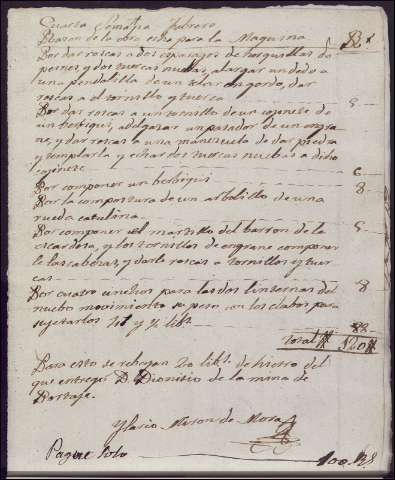 Quarta Semana Febrero
Razon de la obra echa para la Maquina
Por dar roscas a dos espaigas de horquillas de
pernos, y dos tuercas nuebas, alargar un dedo a
una pendalilla de un dedo gordo, dar
roscas a el tornillo y tuerca 8
Por dar roscas a un tornillo de un cojinete de
un berbiqui, adelgazar un pasador de un engra
ne, y dar roscas a una manezuela de dar piedra
y templarla y echar dos tuercas nuebas a dicho
cojinete 6
Por componer un berbiqui 8
Por la compostura de un arbolillo de una
rueda catalina
Por componer el martillo del barron de la
escardosa, y los tornillos de engrane componer
le las cabezas, y darle roscas a tornillos y tuer
cas 8
Por cuatro cinchos para las dos linternas del
nuebo movimiento su peso con los clabos para
sujetarlos 41 y ½ libs 82
Total 120
Para esto se rebajan 20 libs de hierro del
que entregó D. Dionisio de la mina de
Hilario Miron de Mora
Pague Solo 100